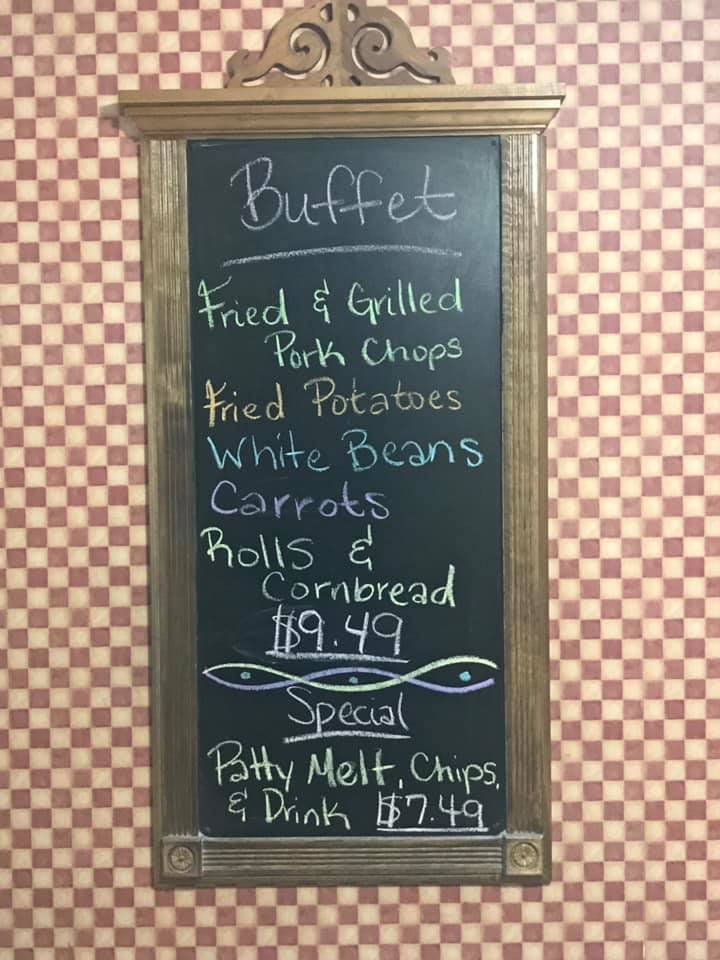 Buffet
Fried & Grilled
Pork Chops
Fried Potatoes
White Beans
Carrots
Rolls &
Cornbread
$9.49
Special
Patty Melt, Chips,
& Drink $7.49